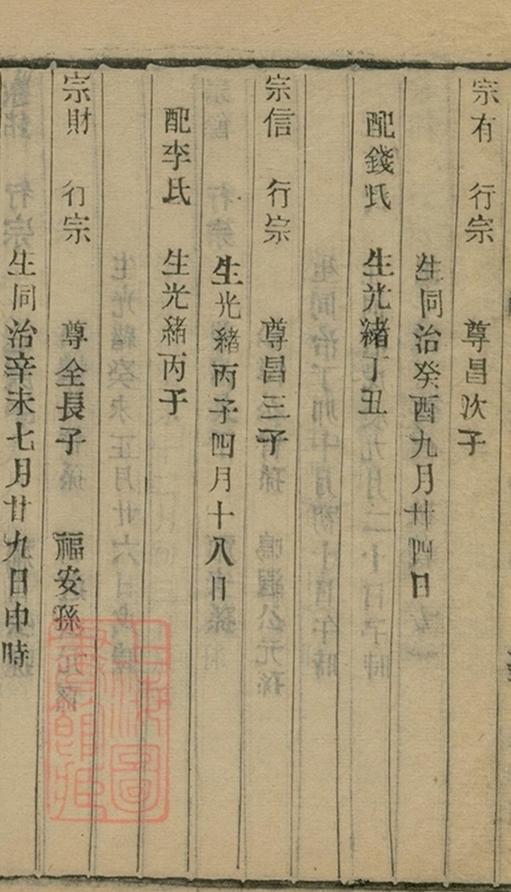 宗有 行宗 尊昌次子
生同治癸酉九月廿四日
配錢氏 生光緒丁丑
宗信 行宗 尊昌三子
生光緒丙子四月十八日
配李氏 生光緒丙子
宗財 行宗 尊全長子 福安孫
生同治辛未七月廿九日申時